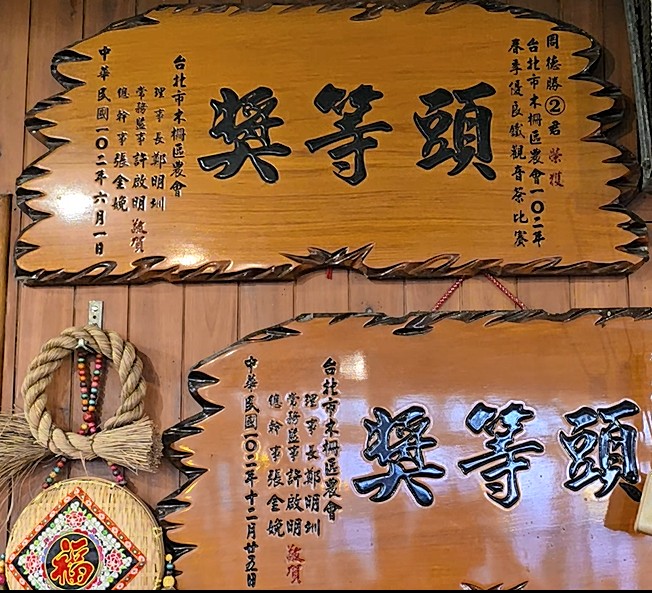 周德勝②君 榮獲
台北市木柵區農會一〇二年
春季優良鐵觀音茶比賽
頭等獎
台北市木柵區農會
理事長 鄭明圳
常務監事 許啟明
總幹事 張金娩
敬賀
中華民國一〇二年六月一日
頭等獎
台北市木柵區農會
理事長 鄭明圳
常務監事 許啟明
總幹事 張金娩
敬賀
中華民國一〇一年十二月廿五日
福